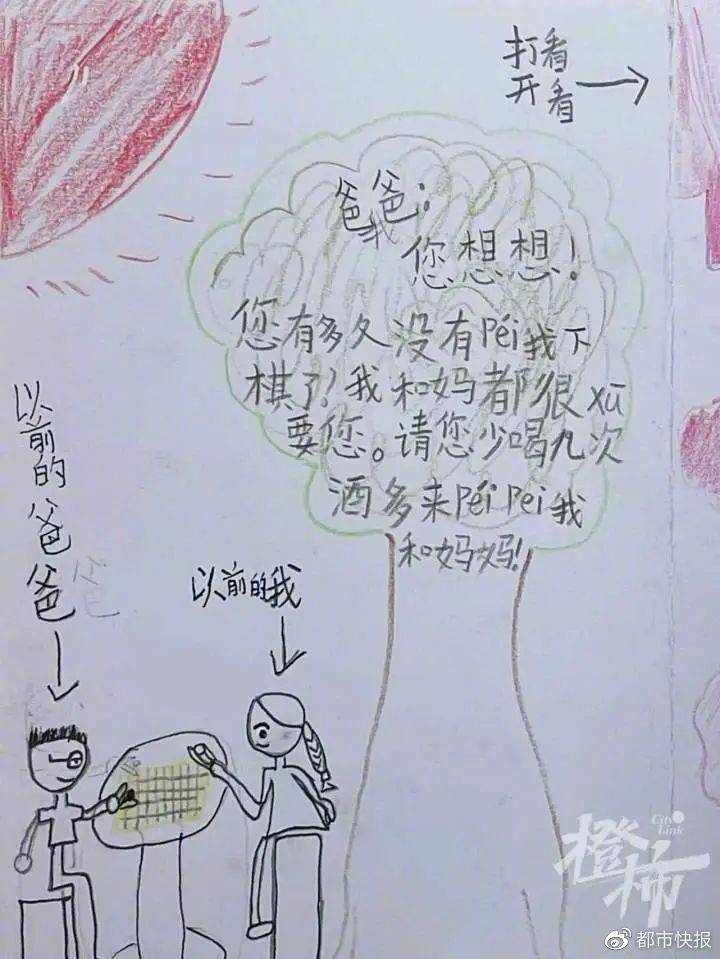 打看
开看
爸爸：
我
您想想！
您有多久没有péi我下
棋了！我和妈都很xū
要您。请您少喝九次
酒多来péi pei我
和妈妈！
以前的爸爸
爸
以前的我
City
Link
橙柿
都市快报